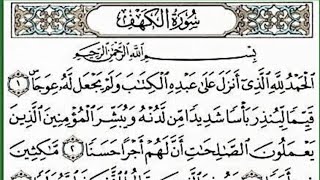 سُورَةُ الكَهْفِ
بِسْمِ اللَّهِ الرَّحْمَٰنِ الرَّحِيمِ
الْحَمْدُ لِلَّهِ الَّذِي أَنزَلَ عَلَىٰ عَبْدِهِ الْكِتَابَ وَلَمْ يَجْعَل لَّهُ عِوَجًا ١
قَيِّمًا لِّيُنذِرَ بَأْسًا شَدِيدًا مِّن لَّدُنْهُ وَيُبَشِّرَ الْمُؤْمِنِينَ الَّذِينَ
يَعْمَلُونَ الصَّالِحَاتِ أَنَّ لَهُمْ أَجْرًا حَسَنًا ٢ مَّاكِثِينَ